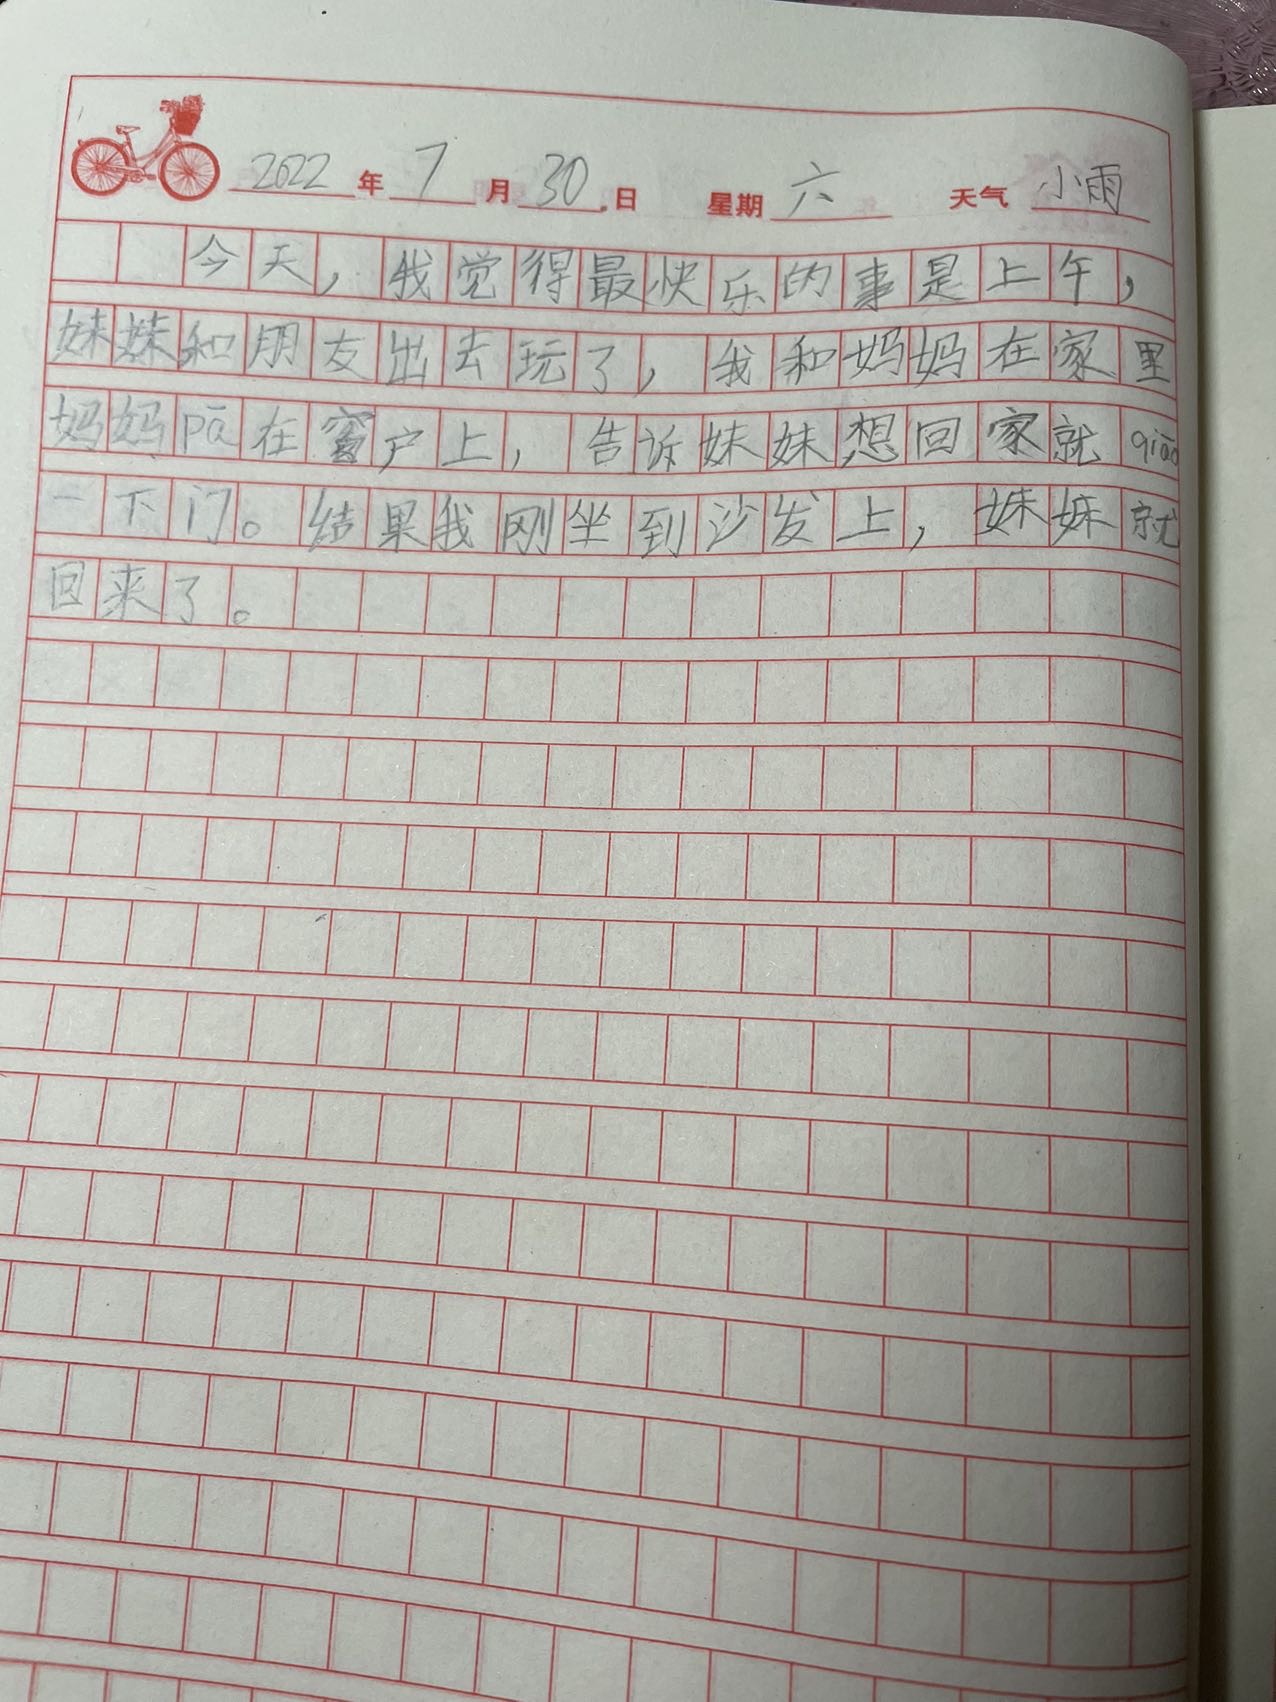 2022年7月30日 星期六 天气小雨
今天，我觉得最快乐的事是上午，
妹妹和朋友出去玩了，我和妈妈在家里
妈妈pā在窗户上，告诉妹妹想回家就qiāo
一下门。结果我刚坐到沙发上，妹妹就
回来了。